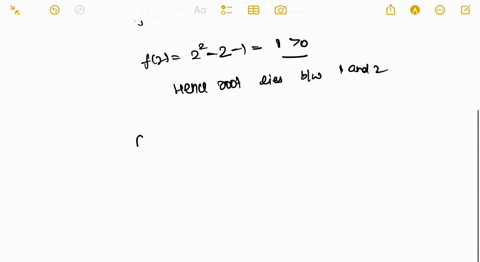 Aa
f(2) = 2² - 2 - 1 = 1 > 0
Hence root lies b/w 1 and 2